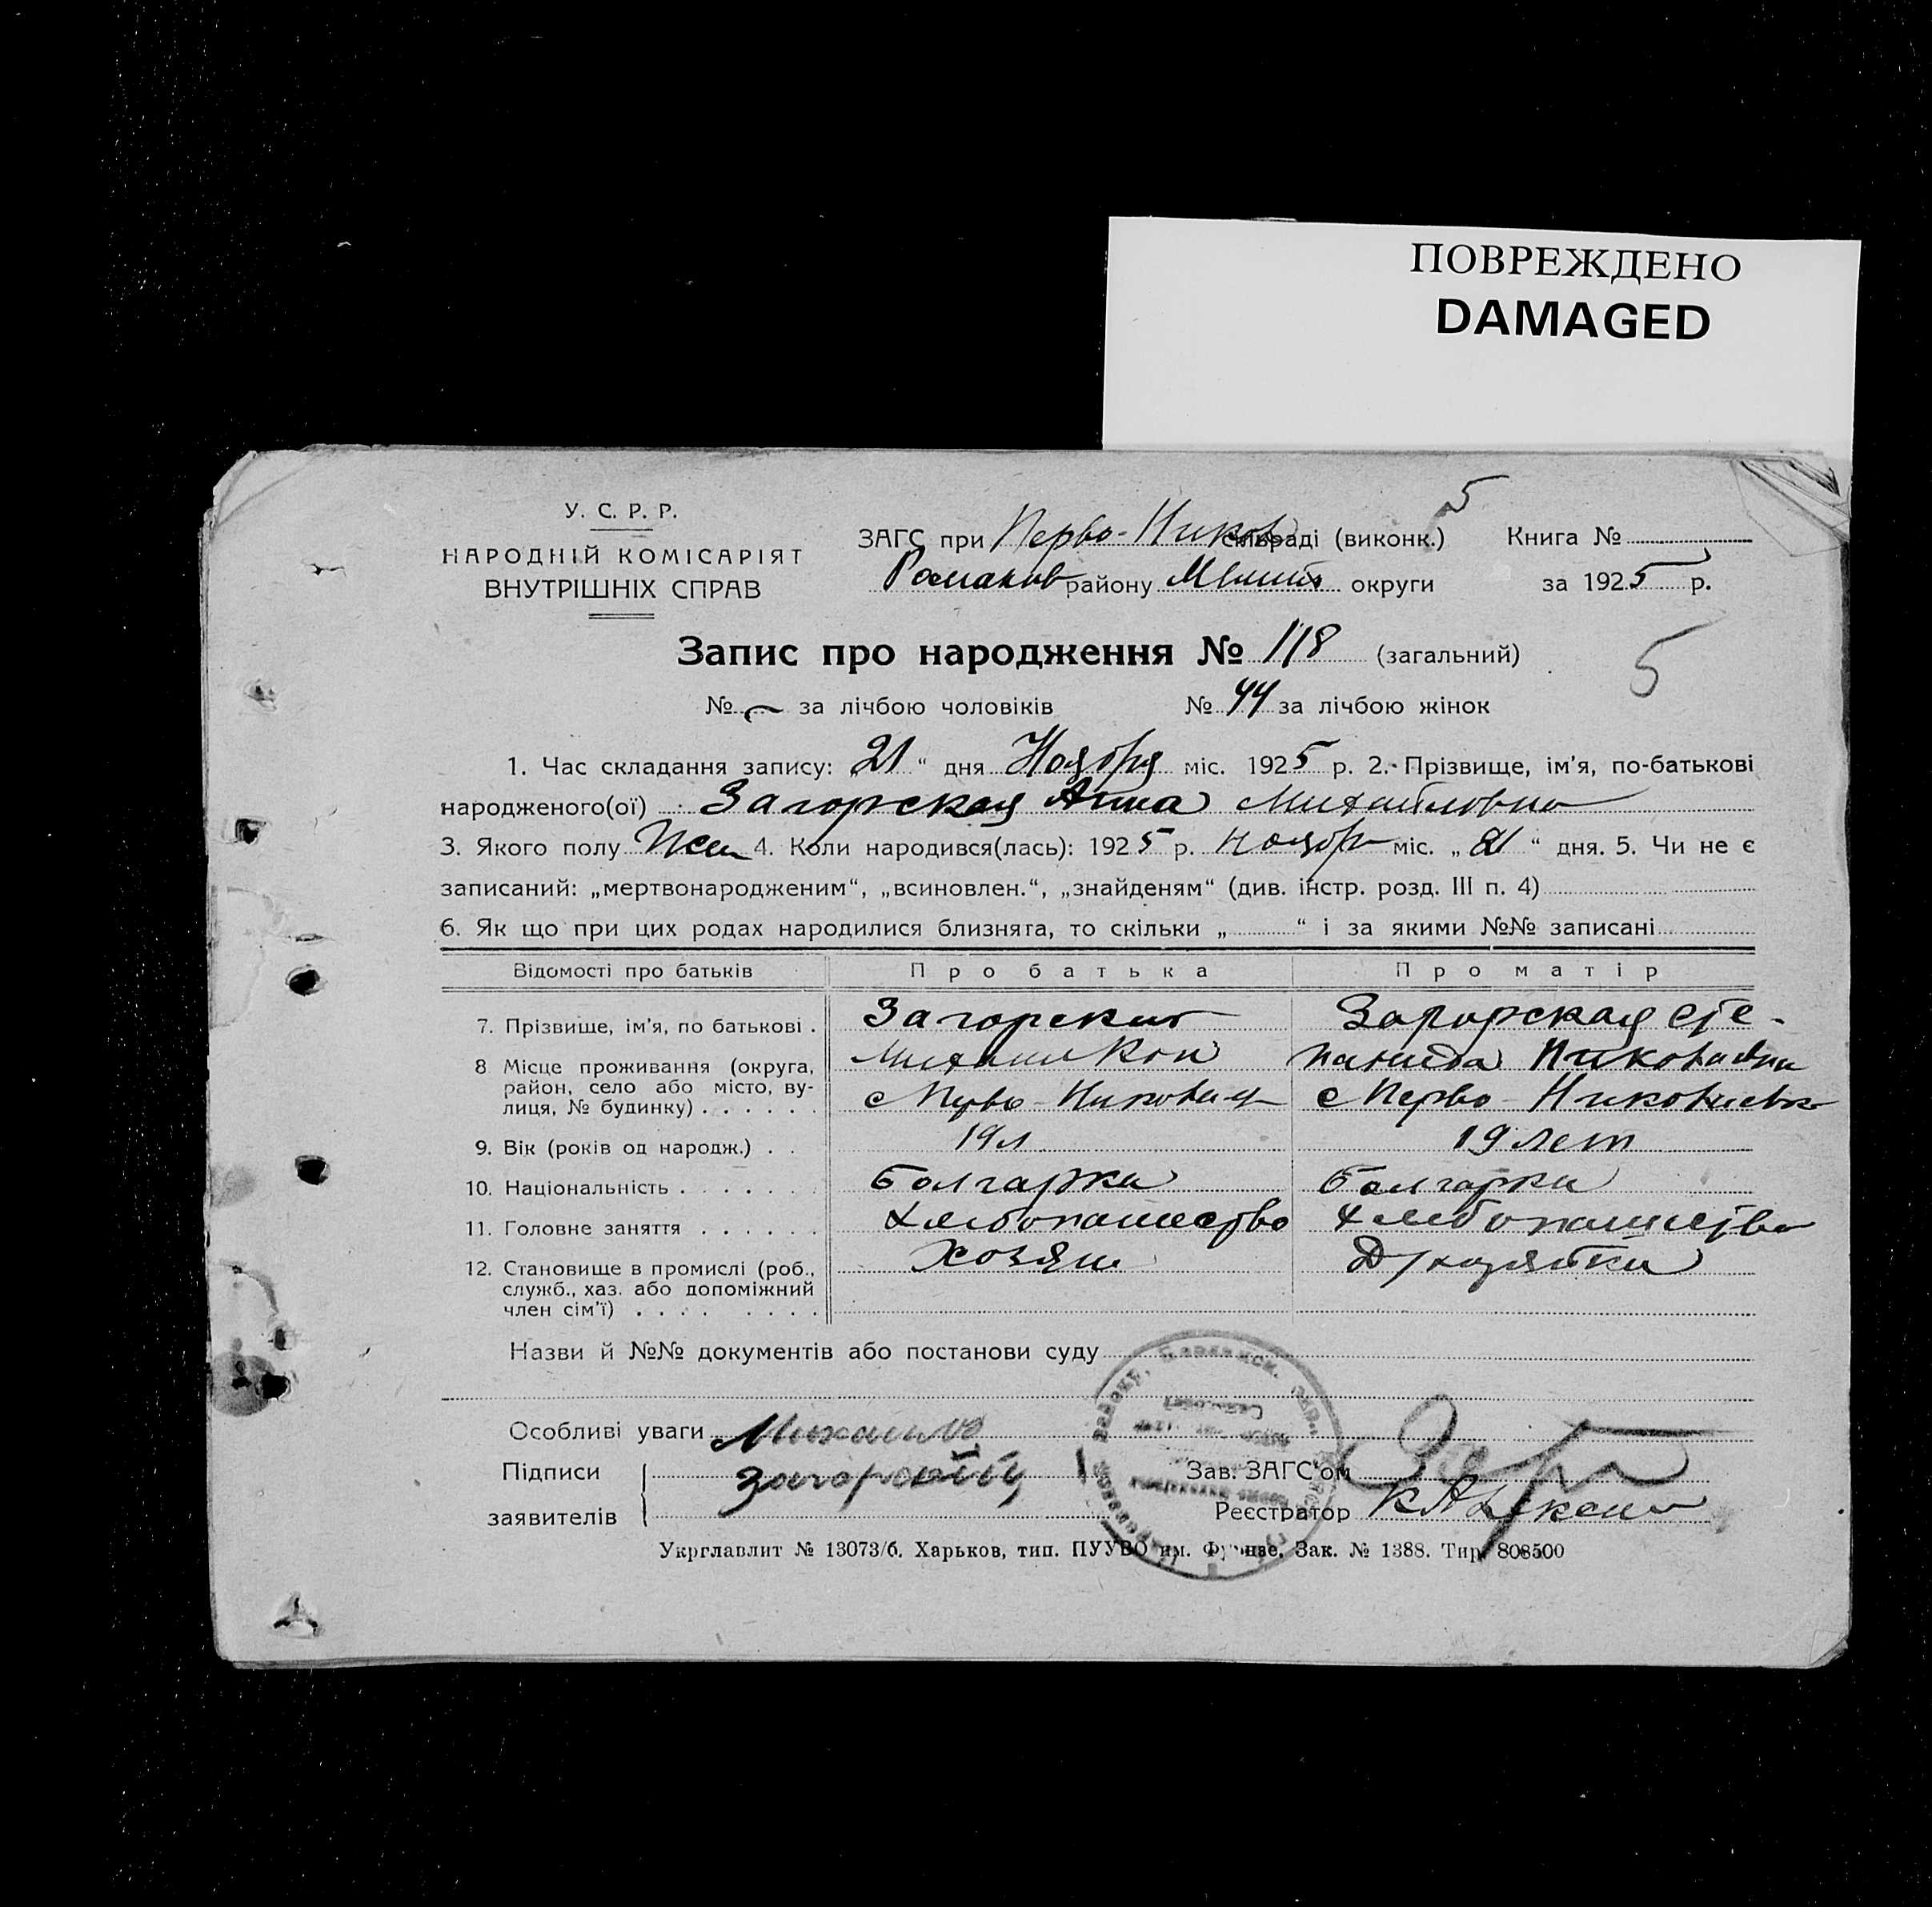 ПОВРЕЖДЕНО
DAMAGED
5
У. С. Р. Р.
НАРОДНІЙ КОМІСАРІЯТ
ВНУТРІШНІХ СПРАВ
ЗАГС при Перво-Никол сільраді (виконк.) Книга №
Романов району округи за 1925 р.
Запис про народження № 118 (загальний)
5
№ – за лічбою чоловіків № 44 за лічбою жінок
1. Час складання запису: „21“ дня Ноября міс. 1925 р. 2. Прізвище, ім'я, по-батькові
народженого(ої) Загорская Анна Михайловна
3. Якого полу Жен 4. Коли народився(лась): 1925 р. Ноябр міс. „21“ дня. 5. Чи не є
записаний: „мертвонародженим“, „всиновлен.“, „знайденям“ (див. інстр. розд. III п. 4)
6. Як що при цих родах народилися близняга, то скільки „ “ і за якими №№ записані
Відомості про батьків Про батька Про матір
7. Прізвище, ім'я, по батькові . Загорский Загорская Сте-
8 Місце проживання (округа, Михаил панида Николаевна
район, село або місто, ву-
лиця, № будинку) . . . . . . с Перво-Николаев с Перво-Николаевк
9. Вік (років од народж.) . . 19 л 19 лет
10. Національність . . . . . . . Болгарка Болгарка
11. Головне заняття . . . . . . Хлебопашество Хлебопашество
12. Становище в промислі (роб., Хозяин
служб., хаз. або допоміжний
член сім'ї) . . . . . . . .
Назви й №№ документів або постанови суду
Особливі уваги Михаил
Підписи Загорский Зав. ЗАГС'ом
заявителів Реєстратор
Укрглавлит № 13073/б. Харьков, тип. ПУУВО им. Фрунзе. Зак. № 1388. Тир. 808500